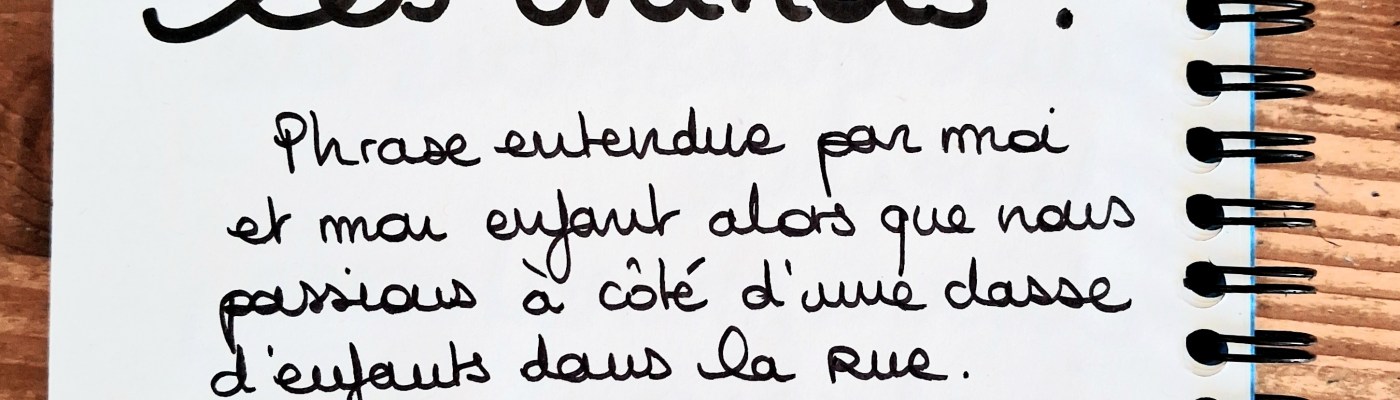 les
Phrase entendue par moi
et mon enfant alors que nous
passions à côté d'une classe
d'enfants dans la rue.